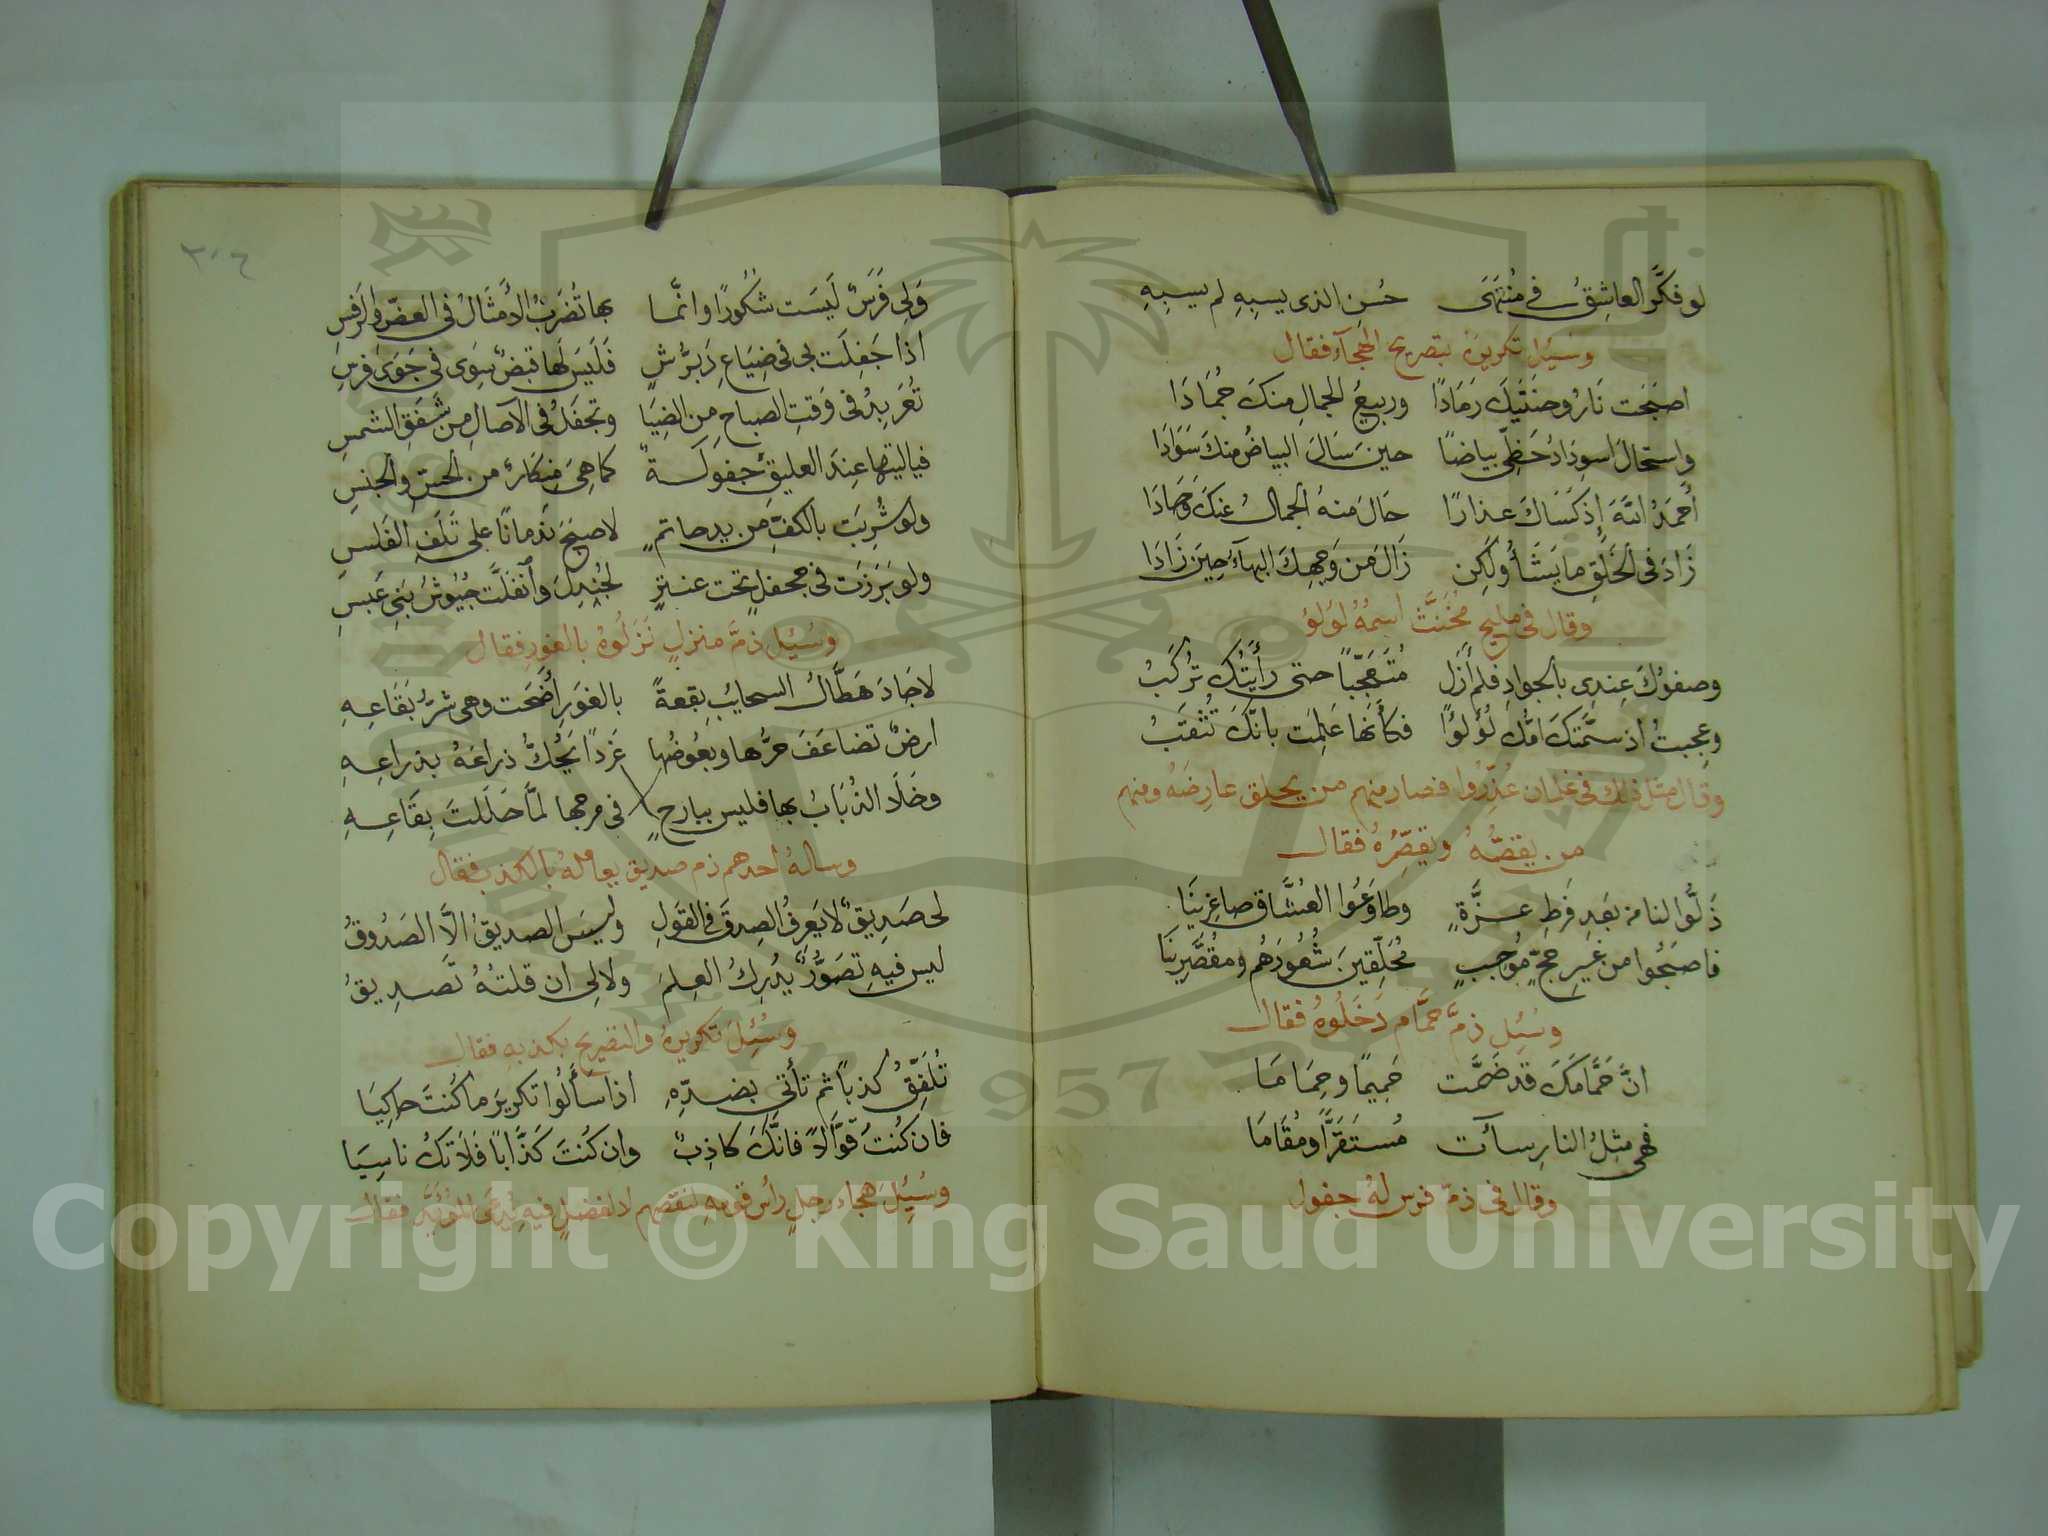 لو فكَّر العاشِقُ في مُنتهَى حُسنِ الذى يسبِيهِ لم يسبِهِ
وسُئِل تكريرَهُ بتصريح الهجآء فقال
اصبَحَت نَارُ وجنَتَيكَ رَمَادًا وربيعُ الجمالِ منكَ جُمَادَا
واستحالَ اسوِدَادُ حَظِّى بياضًا حينَ سَالَ البياضُ منكَ سَوَادَا
أحمَدُ اللهَ إذ كَسَاكَ عذارًا حَالَ منهُ الجمالُ عنكَ وَحَادَا
زَادَ في الخَلقِ ما يَشَأُ ولكِن زَالَ مَن وَجهِكَ البهآءُ حِينَ زَادَا
وقال في مليح مُخَنَّث اسمُهُ لؤلؤ
وصفوُكَ عِندِى بالجوادِ فلم أزَل مُتَعَجِّباً حتى رأيتُكَ تُركَبُ
وعجِبتُ اذ سمَّتكَ امُّك لُؤلُؤًا فكأنها عَلِمَت بانَّكَ تُثقَبُ
وقال مثل ذلك في غلمان عُذِّرُوا فصار منهم من يحلق عارضَهُ ومنهم
من يقصُّهُ ويقصِّرُهُ فقال
ذَلُّوا لنا من بَعدِ فَرطِ عِزَّةٍ وطاوَعُوا العُشَّاق صاغِرِينَا
فاصبَحُوا من غَيرِ حجٍّ مُوجبٍ مُحَلِّقينَ شُعُورَهُم ومُقصِّرِينَا
وسُئِل ذمَّ حمَّام دَخَلُوهُ فقال
انَّ حَمَّامَكَ قد ضَمَّت حَمِيمًا وحِمَامَا
فهى مثلُ النارِ سآت مُستَقَرًّا ومُقَامَا
وقال في ذمّ فرس لهُ جفول
٢٠٦
وَلِى فَرَسٌ لَيسَت شكُورًا وانَّما بها تُضرَبُ الأمثَالُ في العضِّ والرَفسِ
اذا جَفِلَت بى فى ضِيَاعِ فَلَيسَ لَها قبضٌ سِوَى في
تُعَربِدُ فى وَقتِ الصباحِ مِن الضِيَا وتجفَلُ في الآصالِ مِن شَفَقِ الشمسِ
فياليتها عِندَ العليقِ جفولَةٌ كما هِىَ مِن الحسِّ والجنسِ
ولو شُرِيَت بالكفِّ من يدِ حاتمٍ لاصبَحَ نَدمانًا على تَلَفِ الفَلسِ
ولو بَرَزَت في جحفلٍ تحت عنترٍ لجُندِلَ وأنفَلَّت جيُوشُ بَنِى عَبسِ
وسُئِل ذمَّ منزلٍ نَزَلُوهُ بالغور فقال
لا جَادَ هَطَّالُ السحايبِ بقعةً بالغَورِ أضحَت وهى شرُّ بقَاعِهِ
ارضٌ تضاعَفَ حرُّها وبعُوضُها غَرِدًا يَحُكُّ ذراعَهُ بذراعِهِ
وخَلَا الذُبَابُ بها فليس ببارحٍ في مرجها لمَّا حَلَلتَ بِقَاعِهِ
وسالهُ احدهم ذم صديق يعاملهُ بالكذب فقال
لى صَدِيقٌ لا يَعرِفُ الصِدقَ فى القَولِ وليسَ الصديقُ الاَّ الصَدُوقُ
ليس فيهِ تصَوُّرٌ يُدرِكُ العِلمَ ولا لى ان قلتُهُ تَصدِيقُ
وسُئِلَ تكريرهُ والتصريح بكذبهِ فقال
تُلَفِّقُ كذباً ثم تأتى بضدِّهِ اذا سَألُوا تكريرَ ما كُنتَ حاكِيَا
فان كُنتَ قوَّالاً فانَّكَ كاذِبٌ وان كنتَ كَذَّاباً فلاَ تكُ ناسِيَا
وسُئِلَ هجاء رجلٍ رأس قومهِ لنقصهم لا لفضلٍ فيه يُدعَى المؤيَّد فقال
Copyright © King Saud University
1957